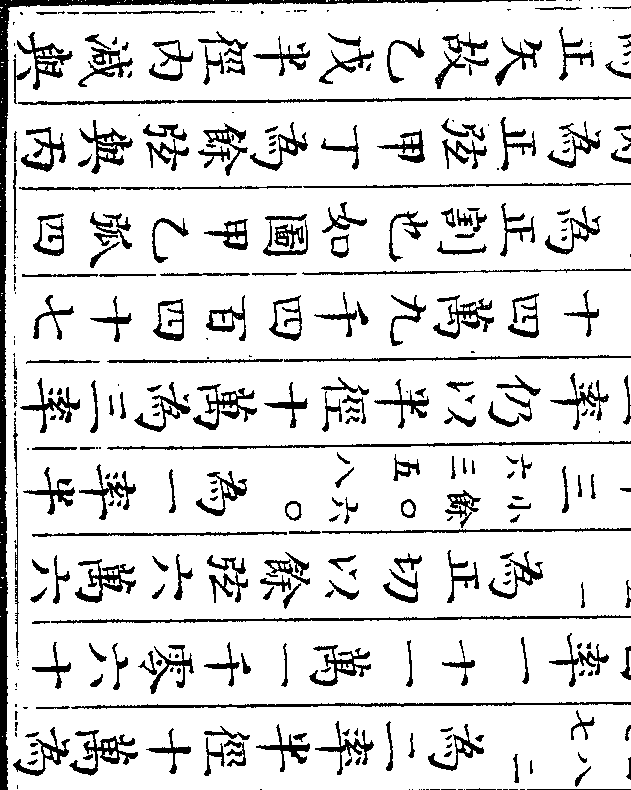 八二七為二率半徑十萬為
率一十一萬一千零六十
一為正切以餘弦六萬六
三小餘〇六〇六三五八為一率半
二率仍以半徑十萬為三率
十四萬九千四百四十七
為正割也如圖甲乙弧四
丙為正弦甲丁為餘弦與丙
為正矢故乙戊半徑內減與